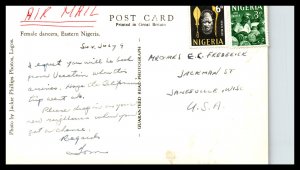 AIR MAIL
POST CARD
Printed in Great Britain
Female dancers, Eastern Nigeria.
Sat. July 9
I expect you will be back
from Vacation when this
arrives. Hope the California
trip went ok.
Please drop in on your
new neighbours when you
get a chance.
Regards
Tom
Photo by Jackie Phillips Photos, Lagos.
6d
NIGERIA
3d
NIGERIA
Mr & Mrs E. C. FREDERICK
JACKMAN ST
JANESVILLE, WISC
U.S.A.